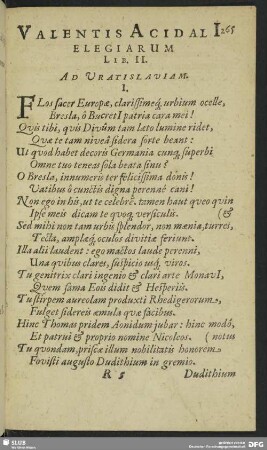 VALENTIS ACIDALI 265
ELEGIARUM
LIB. II.
AD VRATISLAVIAM.
I.
FLos sacer Europæ, clarissimeq́; urbium ocelle,
Bresla, ô BucretI patria cara mei!
Qvis tibi, qvis Divûm tam læto lumine ridet,
Qvæ te tam niveâ sidera sorte beant:
Ut qvod habet decoris Germania cunq; superbi
Omne tuo teneas sola beata sinu?
O Bresla, innumeris ter felicissima donis!
Vatibus ô cunctis digna perenne cani!
Non ego in his, ut te celebrē. tamen haut queo quin
Ipse meis dicam te quoq; versiculis. (&
Sed mihi non tam urbis splendor, non mœnia, turres,
Tecta, amplæq́; oculos divitiæ feriunt.
Illa alii laudent: ego mactos laude perenni,
Una qvibus clares, suspicis usq; viros.
Tu genitrix clari ingenio & clari arte MonavI,
Qvem fama Eois didit & Hesperiis.
Tu stirpem aureolam produxti Rhedigerorum,
Fulget sidereis æmula quæ facibus.
Hinc Thomas pridem Aonidum jubar: hinc modò,
Et patrui & proprio nomine Nicoleos. (notus
Tu quondam, priscæ illum nobilitatis honorem
Fovisti augusto Dudithium in gremio.
R 5 Dudithium
SLUB
DFG